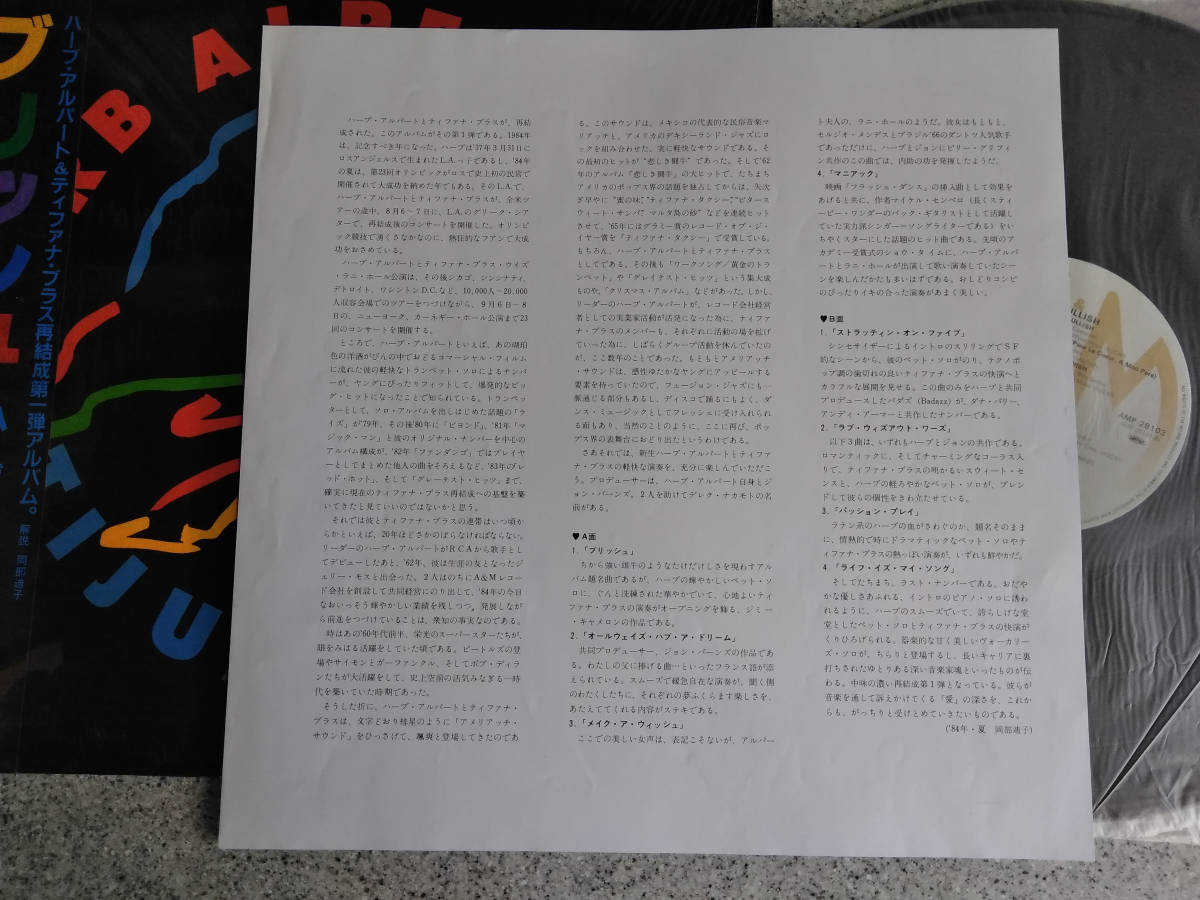 ハーブ・アルバート&ティファナ・ブラス再結成第一弾アルバム。
解説 岡部迪子
ハーブ・アルパートとティファナ・ブラスが、再結
成された。このアルバムがその第1弾である。1984年
は、記念すべき年になった。ハーブは'37年3月31日に
ロスアンジェルスで生まれたL.A.っ子であるし、'84年
の夏は、第23回オリンピックがロスで史上初の民営で
開催されて大成功を納めた年でもある。そのL.A.で、
ハーブ・アルパートとティファナ・ブラスが、全米ツ
アーの途中、8月6〜7日に、L.A.のグリーク・シア
ターで、再結成後のコンサートを開催した。オリンピ
ック競技で湧くさなかなのに、熱狂的なファンで大成
功をおさめている。
ハーブ・アルパートとティファナ・ブラス・ウイズ
・ラニ・ホール公演は、その後シカゴ、シンシナティ、
デトロイト、ワシントンD.C.など、10,000人〜20,000
人収容会場でのツアーをつづけながら、9月6日〜8
日の、ニューヨーク、カーネギー・ホール公演まで23
回のコンサートを開催する。
ところで、ハーブ・アルパートといえば、あの琥珀
色の洋酒がびんの中でおどるコマーシャル・フィルム
に流れた彼の軽快なトランペット・ソロによるナンバー
が、ヤングにぴったりフィットして、爆発的なビッ
グ・ヒットになったことで知られている。トランペッ
ターとして、ソロ・アルバムを出しはじめた話題の「ラ
イズ」が'79年、その後'80年に「ビヨンド」、'81年「マ
ジック・マン」と彼のオリジナル・ナンバーを中心の
アルバム構成が、'82年「ファンダンゴ」ではプレイヤ
ーとしてまとめた他人の曲をそろえるなど、'83年の「ブレ
ッド・ホット」、そして「グレーテスト・ヒッツ」まで、
確実に現在のティファナ・ブラス再結成への基盤を築
いてきたと見ていいのではないかと思う。
それでは彼とティファナ・ブラスの連帯はいつ頃か
らかといえば、20年ほどさかのぼらなければならない。
リーダーのハーブ・アルパートがRCAから歌手とし
てデビューしたあと、'62年、彼は生涯の友となったジ
ェリー・モスと出会った。2人はのちにA&Mレコー
ド会社を創設して共同経営にのり出して、'84年の今日
なおいっそう輝やかしい業績を残しつつ、発展しなが
ら前進をつづけていることは、衆知の事実なのである。
時はあの'60年代前半、栄光のスーパースターたちが、
眼をみはる活躍をしていた頃である。ビートルズの登
場やサイモンとガーファンクル、そしてボブ・ディラ
ンたちが大活躍をして、史上空前の活気みなぎる一時
代を築いていた時期であった。
そうした折に、ハーブ・アルパートとティファナ・
ブラスは、文字どおり彗星のように「アメリアッチ・
サウンド」をひっさげて、颯爽と登場してきたのであ
る。このサウンドは、メキシコの代表的な民俗音楽マ
リアッチと、アメリカのデキシーランド・ジャズにロ
ックを組み合わせた、実に軽快なサウンドである。そ
の最初のヒットが“悲しき闘牛”であった。そして'62
年のアルバム「悲しき闘牛」の大ヒットで、たちまち
アメリカのポップス界の話題を独占してからは、矢次
ぎ早やに“蜜の味”“ティファナ・タクシー”“ビタース
ウィート・サンバ”“マルタ島の砂”などを連続ヒット
させて、'65年にはグラミー賞のレコード・オブ・ジ・
イヤー賞を「ティファナ・タクシー」で受賞している。
もちろん、ハーブ・アルパートとティファナ・ブラス
としてである。その後も「ワークソング/黄金のトラ
ンペット」や「グレイテスト・ヒッツ」という集大成
ものや、「クリスマス・アルバム」などがあった。しかし、
リーダーのハーブ・アルパートが、レコード会社経営
者としての実業家活動が活発になった為に、ティファ
ナ・ブラスのメンバーも、それぞれに活動の場を拡げ
ていった為に、しばらくグループ活動を休んでいたの
が、ここ数年のことであった。もともとアメリアッチ
・サウンドは、感性ゆたかなヤングにアッピールする
要素を持っていたので、フュージョン・ジャズにも一
脈通じる部分もあるし、ディスコで踊るにもよく、ダ
ンス・ミュージックとしてフレッシュに受け入れられ
る面もあり、当然のことのように、ここに再び、ポッ
プス界の表舞台におどり出たというわけである。
さあそれでは、新生ハーブ・アルパートとティファ
ナ・ブラスの軽快な演奏を、充分に楽しんでいただこ
う。プロデューサーは、ハーブ・アルパート自身とジ
ョン・バーンズ。2人を助けてデレク・ナカモトの名
前がある。
♥A面
1.「ブリッシュ」
ちから強い雄牛のようなだけだけしさを現わすアル
バム題名曲であるが、ハーブの輝やかしいペット・ソ
ロに、ぐんと洗練された華やかでいて、心地よいティ
ファナ・ブラスの演奏がオープニングを飾る、ジミー
・キャメロンの作品である。
2.「オールウェイズ・ハブ・ア・ドリーム」
共同プロデューサー、ジョン・バーンズの作品であ
る。わたしの父に捧げる曲…といったフランス語が添
えられている。スムーズで緩急自在な演奏が、聞く側
のわたくしたちに、それぞれの夢ふくらます楽しさを、
あたえてくれる内容がステキである。
3.「メイク・ア・ウィッシュ」
ここでの美しい女声は、表記こそないが、アルパー
ト夫人の、ラニ・ホールのようだ。彼女はもともと、
セルジオ・メンデスとブラジル'66のダントツ人気歌手
であっただけに、ハーブとジョンにビリー・グラフィ
ン共作のこの曲では、内助の功を発揮したようだ。
4.「マニアック」
映画「フラッシュ・ダンス」の挿入曲として効果を
あげると共に、作者マイケル・センベロ(長くスティ
ービー・ワンダーのバック・ギタリストとして活躍し
ていた実力派シンガー＝ソングライターである)をい
ちやくスターにした話題のヒット曲である。先頃のア
カデミー受賞式のショウ・タイムに、ハーブ・アルパ
ートとラニ・ホールが出演して歌い演奏していたシー
ンを楽しんだかたも多いはずである。おしどりコンビ
のぴったりイキの合った演奏があまく美しい。
♥B面
1.「ストラッティン・オン・ファイブ」
シンセサイザーによるイントロのスリリングでSF
的なシーンから、彼のペット・ソロがのり、テクノポ
ップ調の歯切れの良いティファナ・ブラスの快演へと
カラフルな展開を見せる。この曲のみをハーブと共同
プロデュースしたバダズ(Badazz)が、ダナ・バリー、
アンディ・アーマーと共作したナンバーである。
2.「ラブ・ウィズアウト・ワーズ」
以下3曲は、いずれもハーブとジョンの共作である。
ロマンティックに、そしてチャーミングなコーラス入
りで、ティファナ・ブラスの明かるいスウィート・セ
ンスと、ハーブの軽ろやかなペット・ソロが、ブレン
ドして彼らの個性をきわ立たせている。
3.「パッション・プレイ」
ラテン系のハーブの血がさわぐのか、題名そのまま
に、情熱的で時にドラマティックなペット・ソロやテ
ィファナ・ブラスの熱っぽい演奏が、いずれも鮮やかだ。
4.「ライフ・イズ・マイ・ソング」
そしてたちまち、ラスト・ナンバーである。おだや
かな優しさあふれる、イントロのピアノ・ソロに誘わ
れるように、ハーブのスムーズでいて、誇らしげな堂
堂としたペット・ソロとティファナ・ブラスの快演が
くりひろげられる。器楽的な甘く美しいヴォーカリー
ズ・ソロが、ちらりと登場するし、長いキャリアに裏
打ちされたゆとりある深い音楽家魂といったものが伝
わる。中味の濃い再結成第1弾となっている。彼らが
音楽を通して訴えかけてくる「愛」の深さを、これか
らも、がっちりと受けとめていきたいものである。
('84年・夏 岡部迪子)
AMP-28103